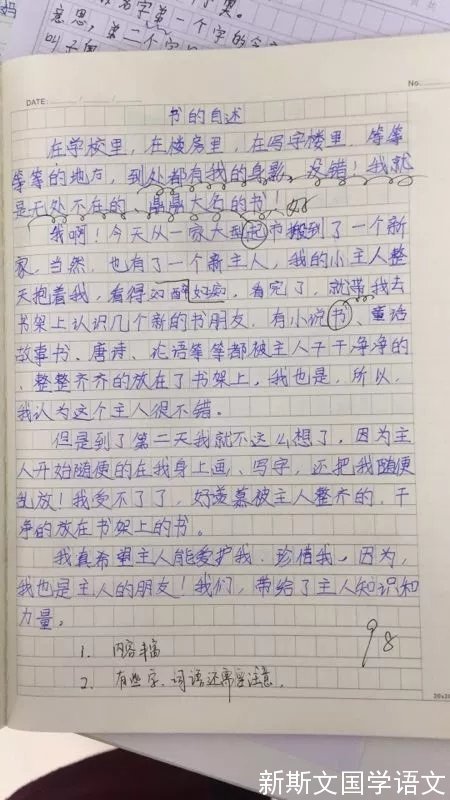 意思,第二个字
DATE: / /
No.
书的自述
在学校里,在楼房里,在写字楼里,等等
等等的地方,到处都有我的身影,没错!我就
是无处不在的、鼎鼎大名的书!好
我啊!今天从一家大型超市搬到了一个新
家,当然,也有了一个新主人,我的小主人整
天抱着我,看得如醉如痴,看完了,就带我去
书架上认识几个新的书朋友,有小说书、童话
故事书、唐诗、论语等等都被主人干干净净的
、整整齐齐的放在了书架上,我也是,所以,
我认为这个主人很不错。
但是到了第二天我就不这么想了,因为主
人开始随便的在我身上画、写字,还把我随便
乱放!我受不了了,好羡慕被主人整齐的、干
净的放在书架上的书。
我真希望主人能爱护我、珍惜我,因为,
我也是主人的朋友!我们,带给了主人知识和
力量。
98
1. 内容丰富
2. 有些字、词语还需要注意。
20x20
新斯文国学语文